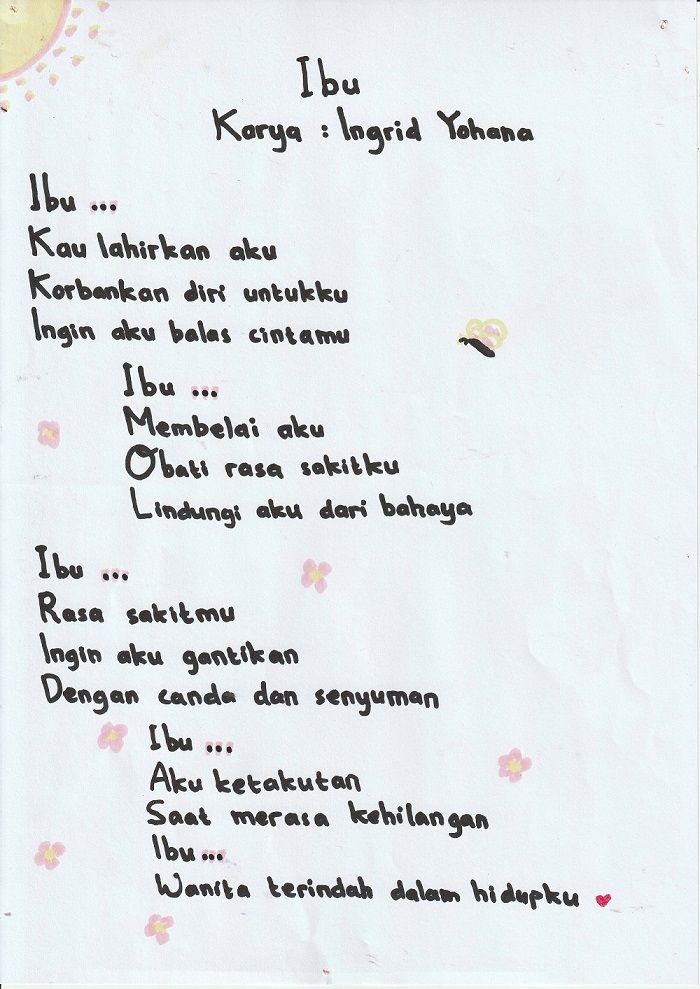 Ibu
Karya : Ingrid Yohana
Ibu ...
Kau lahirkan aku
Korbankan diri untukku
Ingin aku balas cintamu
Ibu ...
Membelai aku
Obati rasa sakitku
Lindungi aku dari bahaya
Ibu ...
Rasa sakitmu
Ingin aku gantikan
Dengan canda dan senyuman
Ibu ...
Aku ketakutan
Saat merasa kehilangan
Ibu ...
Wanita terindah dalam hidupku